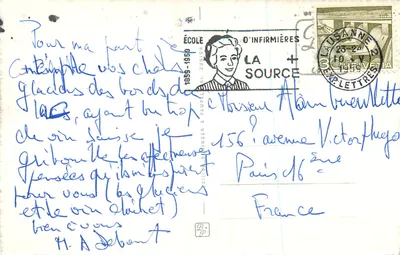 Pour ma part je
contemple vos chers
glaciers des bords du
lac, ayant bu trop
de vin suisse je
gribouille les affectueuses
pensées qu'ils inspirent
pour vous (les glaciers
et le vin clairet)
bien à vous
M. A Debout
ÉCOLE D'INFIRMIÈRES
1859-1959
LA
SOURCE
LAUSANNE 2
1959
EXP. LETTRES
Monsieur Alain
156 avenue Victor Hugo
Paris 16ème
France